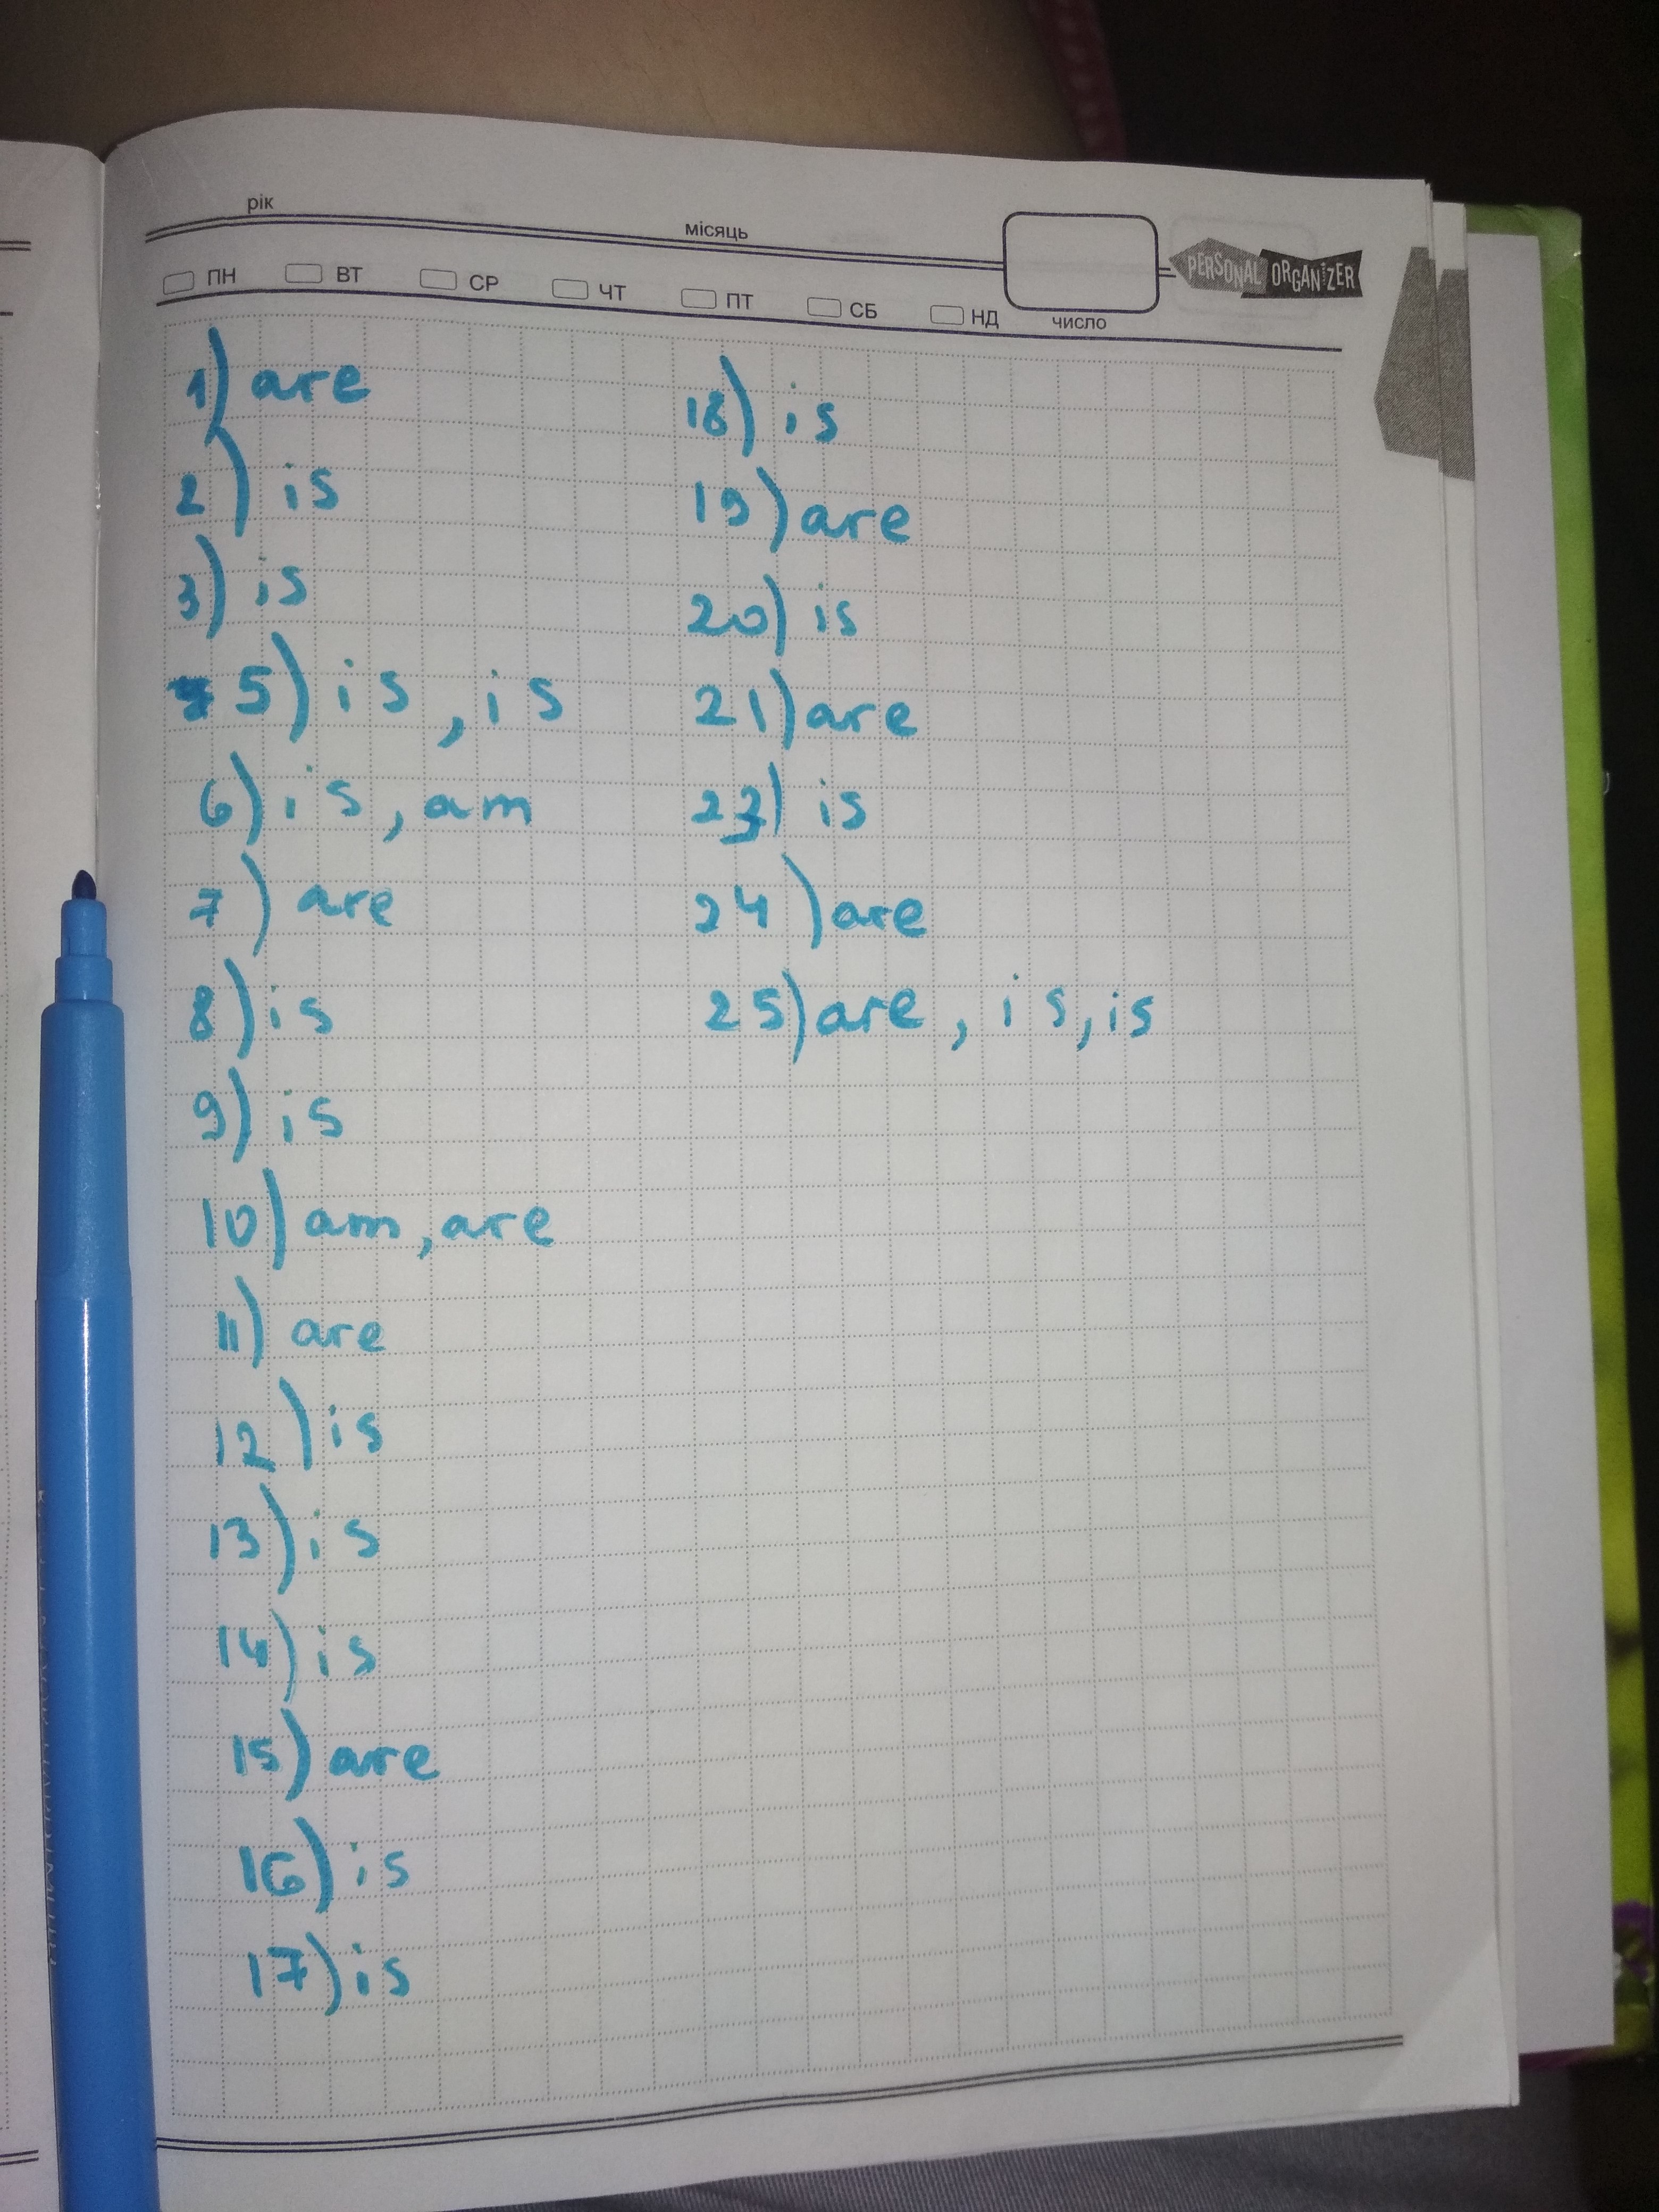 рік
місяць
число
PERSONAL ORGANIZER
ПН ВТ СР ЧТ ПТ СБ НД
1) are
2) is
3) is
5) is, is
6) is, am
7) are
8) is
9) is
10) am, are
11) are
12) is
13) is
14) is
15) are
16) is
17) is
18) is
19) are
20) is
21) are
23) is
24) are
25) are, is, is